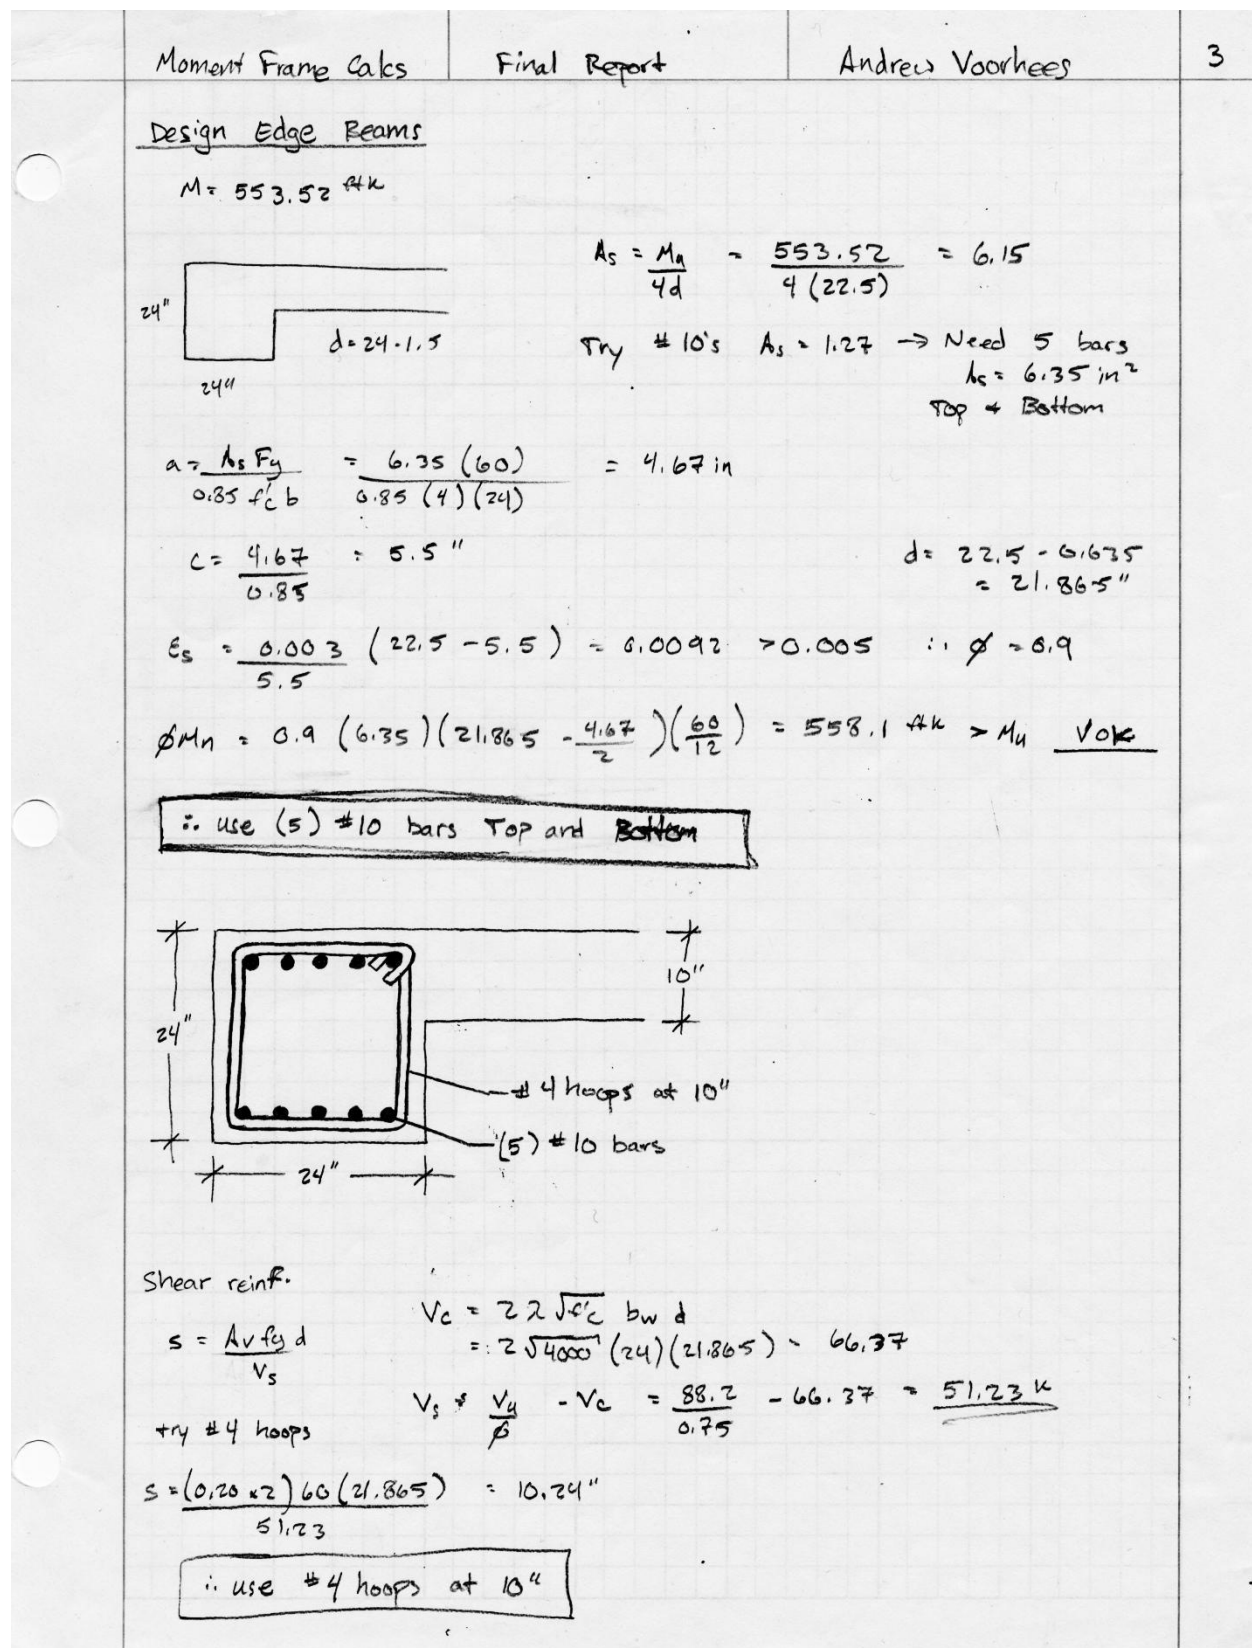 Moment Frame Calcs Final Report Andrew Voorhees 3
Design Edge Beams
M = 553.52 ftk
As = Mu/4d = 553.52/4(22.5) = 6.15
24"
d = 24-1.5
24"
Try #10's As = 1.27 → Need 5 bars
As = 6.35 in²
Top + Bottom
a = As Fy/0.85 f'c b = 6.35 (60)/0.85 (4)(24) = 4.67 in
c = 4.67/0.85 = 5.5"
d = 22.5 - 0.635
= 21.865"
εs = 0.003/5.5 (22.5 - 5.5) = 0.0092 > 0.005 ∴ ϕ = 0.9
ϕMn = 0.9 (6.35)(21.865 - 4.67/2)(60/12) = 558.1 ftk > Mu √OK
∴ use (5) #10 bars Top and Bottom
10"
24"
#4 hoops at 10"
(5) #10 bars
24"
Shear reinf.
Vc = 2 λ √f'c bw d
s = Av fy d/Vs
= 2 √4000 (24)(21.865) = 66.37
Vs = Vu/ϕ - Vc = 88.2/0.75 - 66.37 = 51.23 k
try #4 hoops
s = (0.20 x2) 60 (21.865)/51.23 = 10.24"
∴ use #4 hoops at 10"